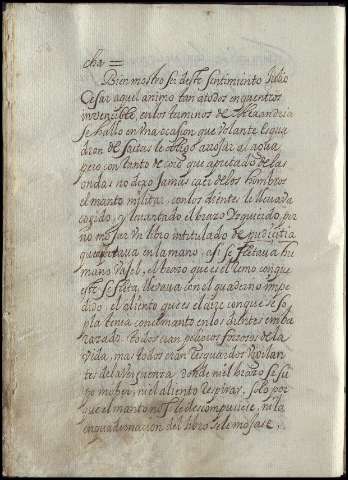 cha =
Bien mostro ser deste sentimiento Julio
Cesar aquel animo tan a todos enquentros
invencible, en los terminos de Alexandria
se hallo en una ocasion que volante esqua
dron de saitas le obligo arrojar al agua
pero con tanto que apretado de las
ondas no dexo jamas caer de los hombros
el manto militar, con los dientes le llevava
cogido, y levantado el brazo Yzquierdo, por
no mojar un libro intitulado de pudicitia
que en la mano, asi se fletava hu
mano vajel, el brazo que es el remo conque
este se llevava con el quaderno impe
dido, el aliento que es el aire conque se so
pla tenia con el manto en los dientes emba
razado. todos eran peligros forzosos de la
vida, mas todos eran resguardos vigilan
tes de la verguenza donde ni el brazo se su
po mober, ni el aliento respirar, solo por
que el manto no se le descompusiese, ni la
enquadernacion del libro se le mojase.